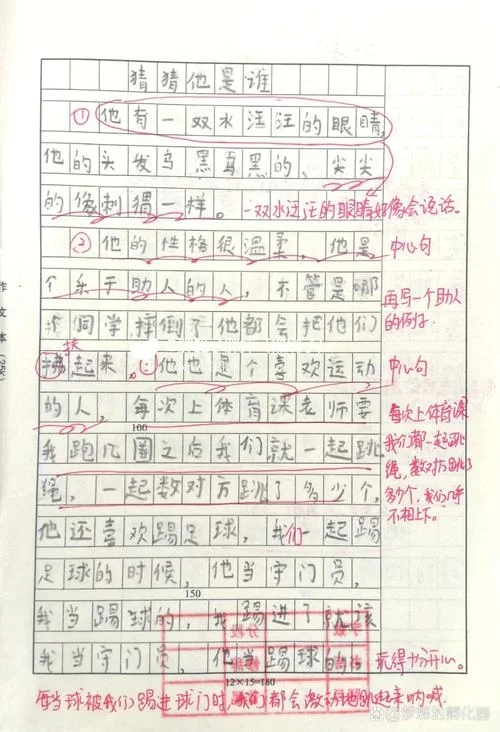 猜猜他是谁
① 他有一双水汪汪的眼睛,
他的头发乌黑乌黑的、尖尖
的像刺猬一样。一双水汪汪的眼睛好像会说话。
② 他的性格很温柔,他是
中心句
个乐于助人的人,不管是哪
再写一个助人的例子.
同学摔倒了他都会把他们
扶
起来。③他也是个喜欢运动
中心句
的人,每次上体育课老师要
100
我跑几圈之后我们就一起跳
绳,一起数对方跳了多少个,
每次上体育课
我们都一起跳
绳,数对方跳了
多少个,我们几乎
不相上下。
他还喜欢踢足球,我们一起踢
足球的时候,他当守门员,
150
我当踢球的,我踢进了就该
我当守门员,他当踢球的。
玩得十分开心。
12×15=180
每当球被我们踢进球门时,我们都会激动地跳起来呐喊
作文本(25K)